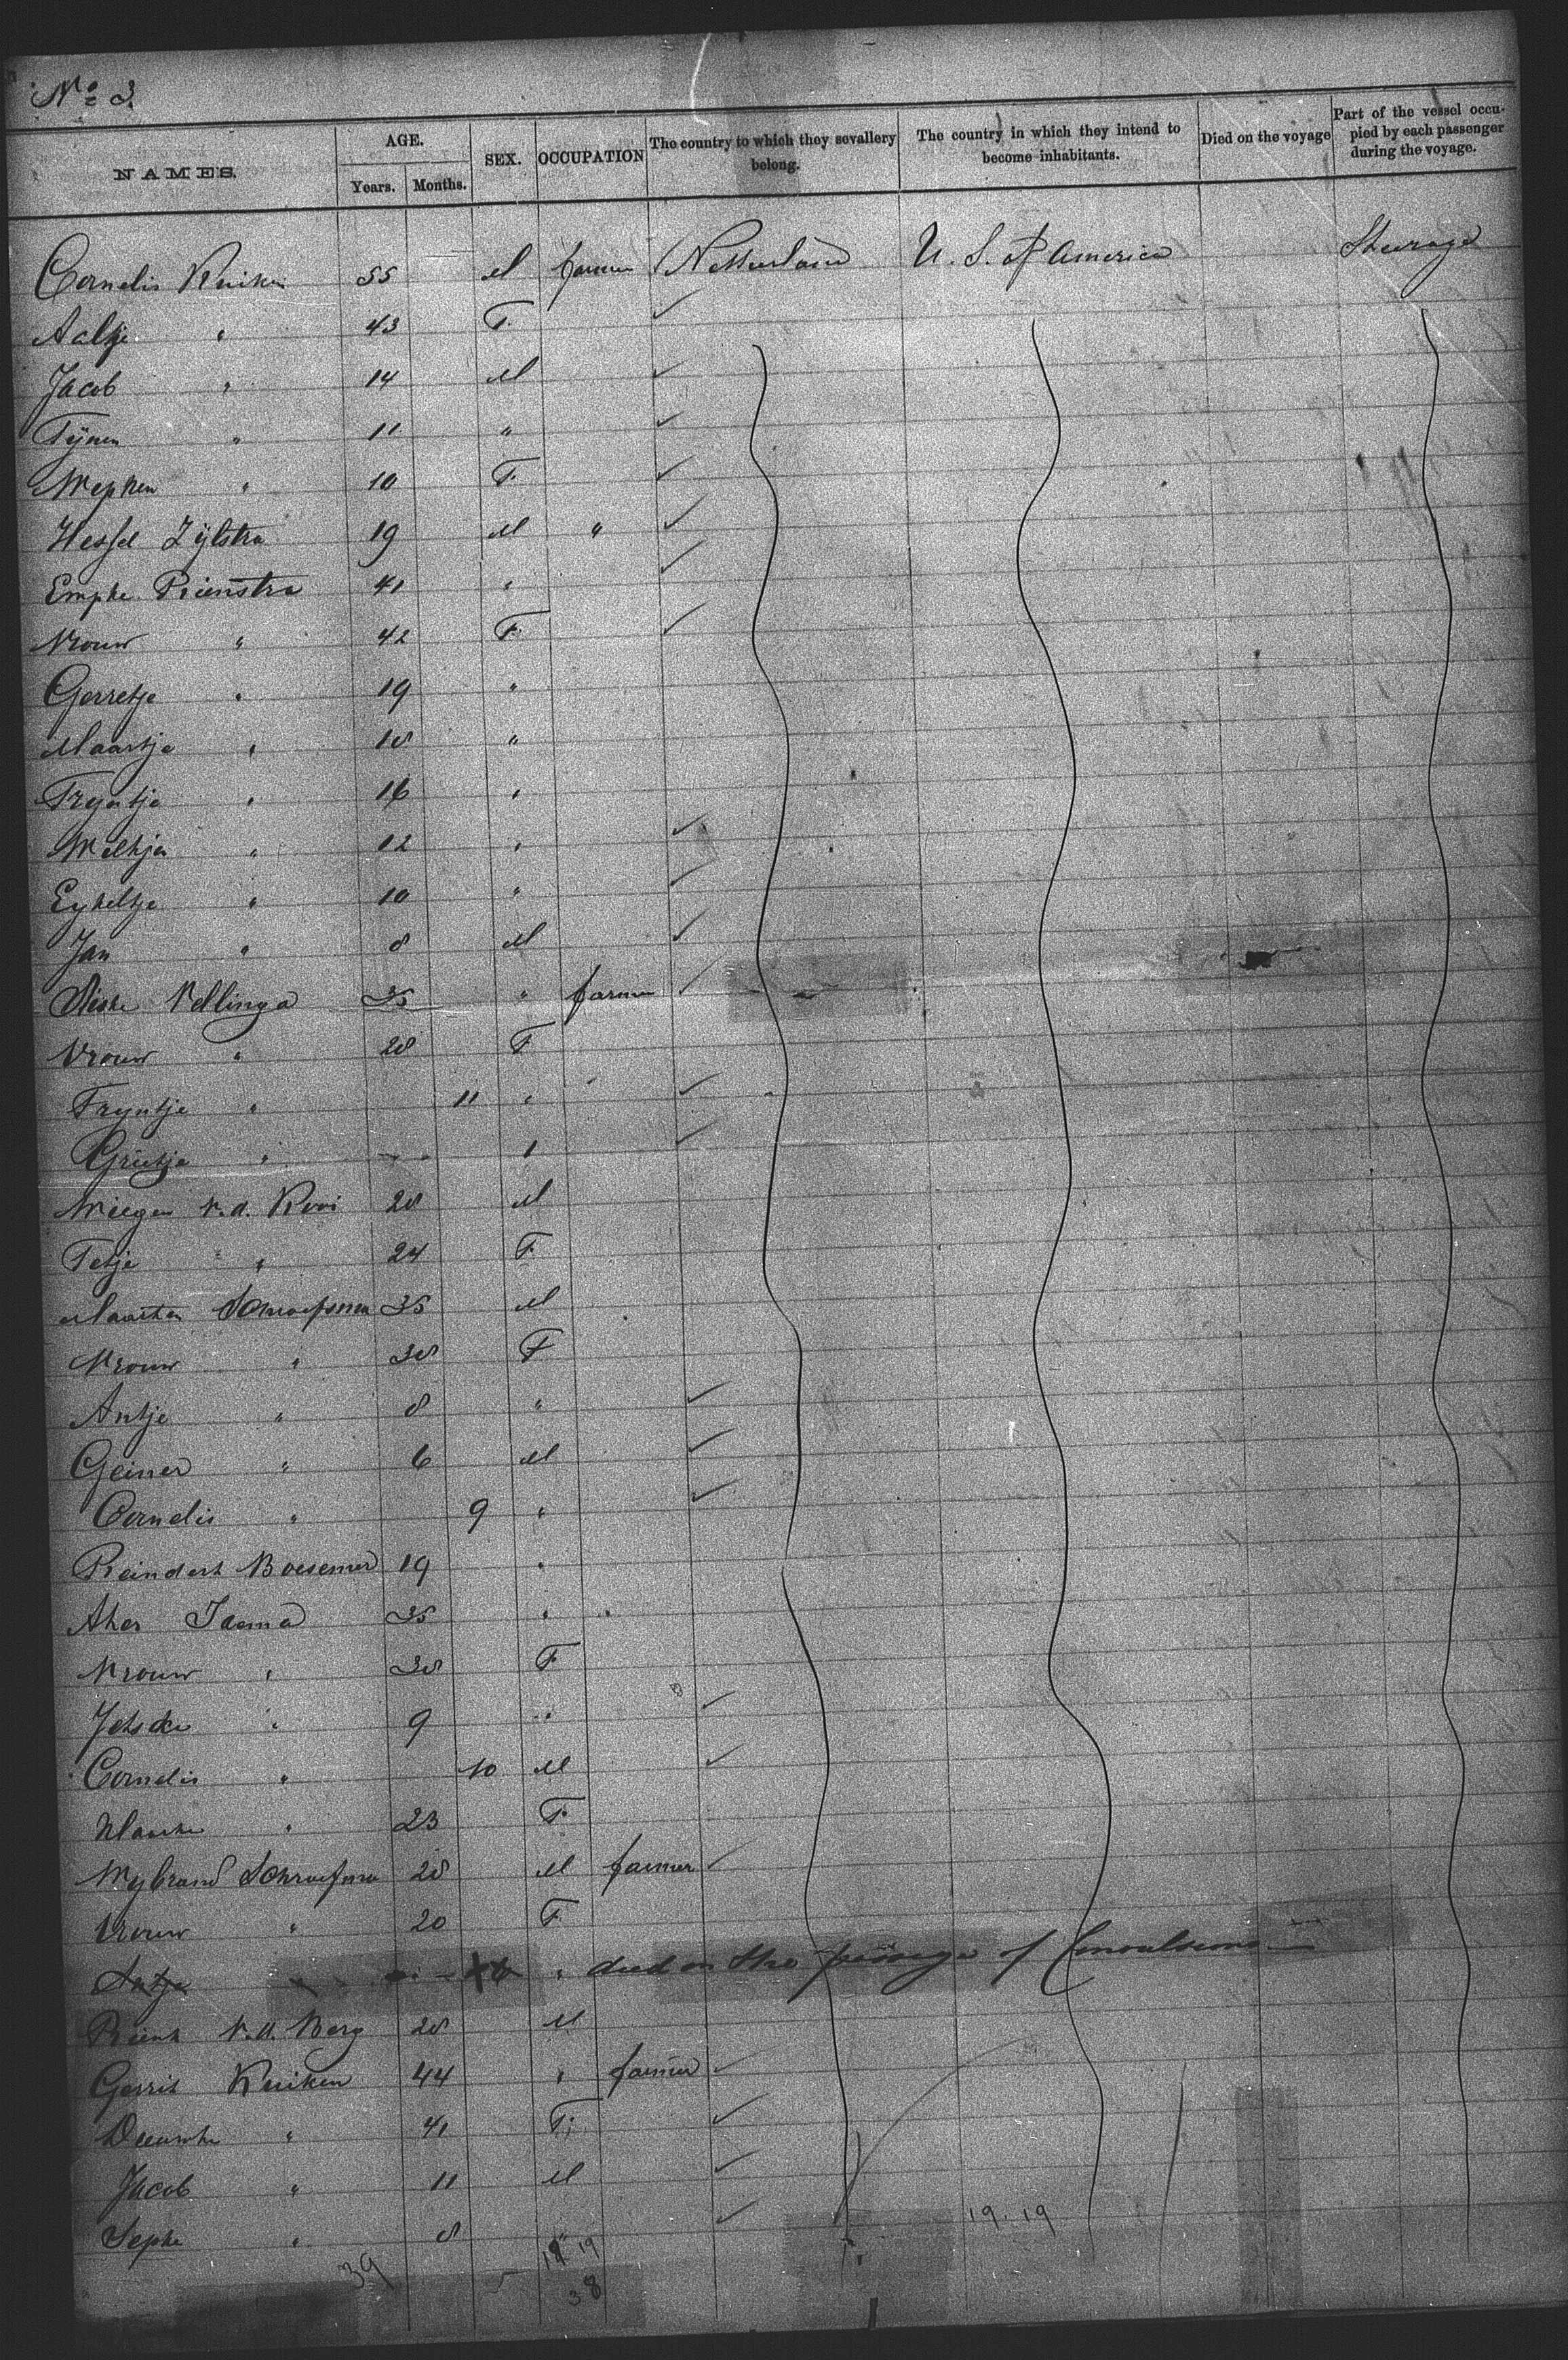 No 3
NAMES. AGE. Years. Months. SEX. OCCUPATION The country to which they sevallery belong. The country in which they intend to become inhabitants. Died on the voyage Part of the vessel occupied by each passenger during the voyage.
Cornelis Kuiken 55 M farmer Netherland U. S. of America Steerage
Aaltje " 43 F.
Jacob " 14 M
Tÿmen " 11 "
Wepken " 10 F.
Hessel Zÿlstra 19 M "
Empke Rienstra 41 "
Vrouw " 42 F.
Gerretje " 19 "
Maartje " 18 "
Tryntje " 16 "
Meltje " 12 "
Eykeltje " 10 "
Jan " 8 M
Vellinga 35 " farmer
Vrouw " 28 F
Tryntje " 11 "
Grietje " "
v.d. Kooi 28 M
Tetje " " 24 F.
Maarten Schraefsma 35 M
Vrouw " 38 F
Antje " 8 "
Geiner " 6 M
Cornelis " 9 "
Reindert Boesemer 19 "
35 "
Vrouw " 38 F
Jetscke " 9 "
Cornelis " 10 M
Klaaske " 23 F.
Wybrand Schraefsma 28 M farmer
Vrouw " 20 F.
Antje " died on the passage of Convulsions
v.d. Berg 28 M
Gerrit Kuiken 44 " farmer
" 41 F.
Jacob " 11 M
Sepke " 8 "
19 19
19 19
39
38